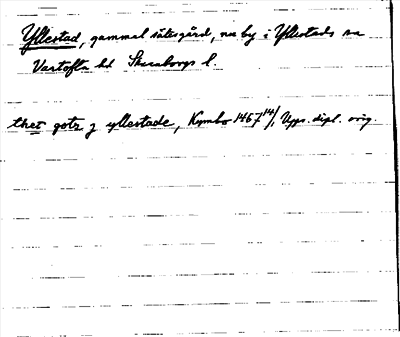 Yllestad, gammal sätesgård, nu by i Yllestads sn
Vartofta hd Skaraborgs l.
thet gotz j yllestade, Kymbo 1467 14/1, Upps. dipl. orig.